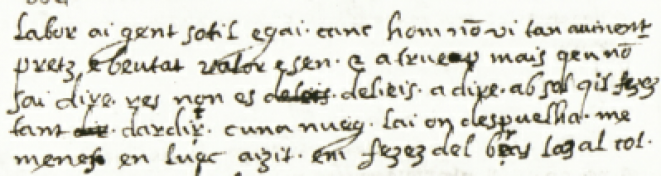 labor ai gent sotil e gai. canc hom nō vi tan avinent
pretz, e beutat valor e sen. e a trueop mais qeu nō
sai dire. res non es del eis. a dire. ab sol qil fezes
tant dardir. cuna nueg. lai on despuelha. me
menes en luec aizit. em fezes del bras laz al col.